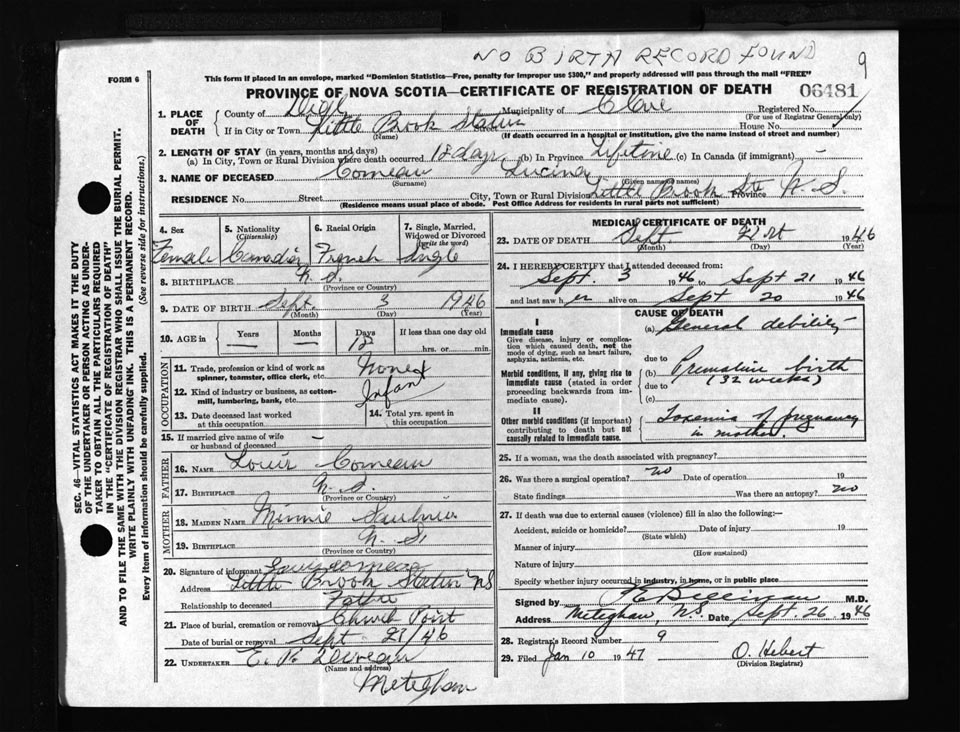 NO BIRTH RECORD FOUND
9
FORM 6
This form if placed in an envelope, marked "Dominion Statistics—Free, penalty for improper use $300," and properly addressed will pass through the mail "FREE"
PROVINCE OF NOVA SCOTIA—CERTIFICATE OF REGISTRATION OF DEATH 06481
1. PLACE OF DEATH
County of Digby Municipality of Clare Registered No.
(For use of Registrar General only)
If in City or Town Little Brook Station Street House No.
(Name) (If death occurred in a hospital or institution, give the name instead of street and number)
2. LENGTH OF STAY (in years, months and days)
(a) In City, Town or Rural Division where death occurred 18 days (b) In Province Lifetime (c) In Canada (if immigrant) —
3. NAME OF DECEASED Comeau Lucina
(Surname) (Given name or names)
RESIDENCE No. Street City, Town or Rural Division Little Brook Sta Province N. S.
(Residence means usual place of abode. Post Office Address for residents in rural parts not sufficient)
4. Sex
5. Nationality (Citizenship)
6. Racial Origin
7. Single, Married, Widowed or Divorced (write the word)
Female Canadian French Single
8. BIRTHPLACE N. S.
(Province or Country)
9. DATE OF BIRTH Sept. 3 1946
(Month) (Day) (Year)
10. AGE in Years — Months — Days 18 If less than one day old
hrs. or min.
OCCUPATION
11. Trade, profession or kind of work as spinner, teamster, office clerk, etc. None
12. Kind of industry or business, as cotton-mill, lumbering, bank, etc. Infant
13. Date deceased last worked at this occupation
14. Total yrs. spent in this occupation
15. If married give name of wife or husband of deceased —
FATHER
16. NAME Louis Comeau
17. BIRTHPLACE N. S.
(Province or Country)
MOTHER
18. MAIDEN NAME Minnie
19. BIRTHPLACE N. S.
(Province or Country)
20. Signature of informant Louis Comeau
Address Little Brook Station NS
Relationship to deceased Father
21. Place of burial, cremation or removal Church Point
Date of burial or removal Sept 21/46
22. UNDERTAKER E. P. Deveau
(Name and address)
Meteghan
MEDICAL CERTIFICATE OF DEATH
23. DATE OF DEATH Sept. 21st 1946
(Month) (Day) (Year)
24. I HEREBY CERTIFY that I attended deceased from:
Sept. 3 1946 to Sept 21 1946
and last saw her alive on Sept 20 1946
CAUSE OF DEATH
I
Immediate cause
Give disease, injury or complication which caused death, not the mode of dying, such as heart failure, asphyxia, asthenia, etc.
(a) General debility
due to
Morbid conditions, if any, giving rise to immediate cause (stated in order proceeding backwards from immediate cause).
(b) Premature birth
due to (32 weeks)
(c)
II
Other morbid conditions (if important) contributing to death but not causally related to immediate cause.
Toxemia of pregnancy
in mother.
25. If a woman, was the death associated with pregnancy?
26. Was there a surgical operation? no Date of operation 19
State findings Was there an autopsy? no
27. If death was due to external causes (violence) fill in also the following:—
Accident, suicide or homicide? Date of injury 19
(State which)
Manner of injury
(How sustained)
Nature of injury
Specify whether injury occurred in industry, in home, or in public place
Signed by M.D.
Address Meteghan, N.S. Date Sept. 26 1946
28. Registrar's Record Number 9
29. Filed Jan 10 1947 O. Hebert
(Division Registrar)
SEC. 46—VITAL STATISTICS ACT MAKES IT THE DUTY
OF THE UNDERTAKER OR PERSON ACTING AS UNDER-
TAKER TO OBTAIN ALL THE PARTICULARS REQUIRED
IN THE "CERTIFICATE OF REGISTRATION OF DEATH"
AND TO FILE THE SAME WITH THE DIVISION REGISTRAR WHO SHALL ISSUE THE BURIAL PERMIT.
WRITE PLAINLY WITH UNFADING INK. THIS IS A PERMANENT RECORD.
Every item of information should be carefully supplied. (See reverse side for instructions.)